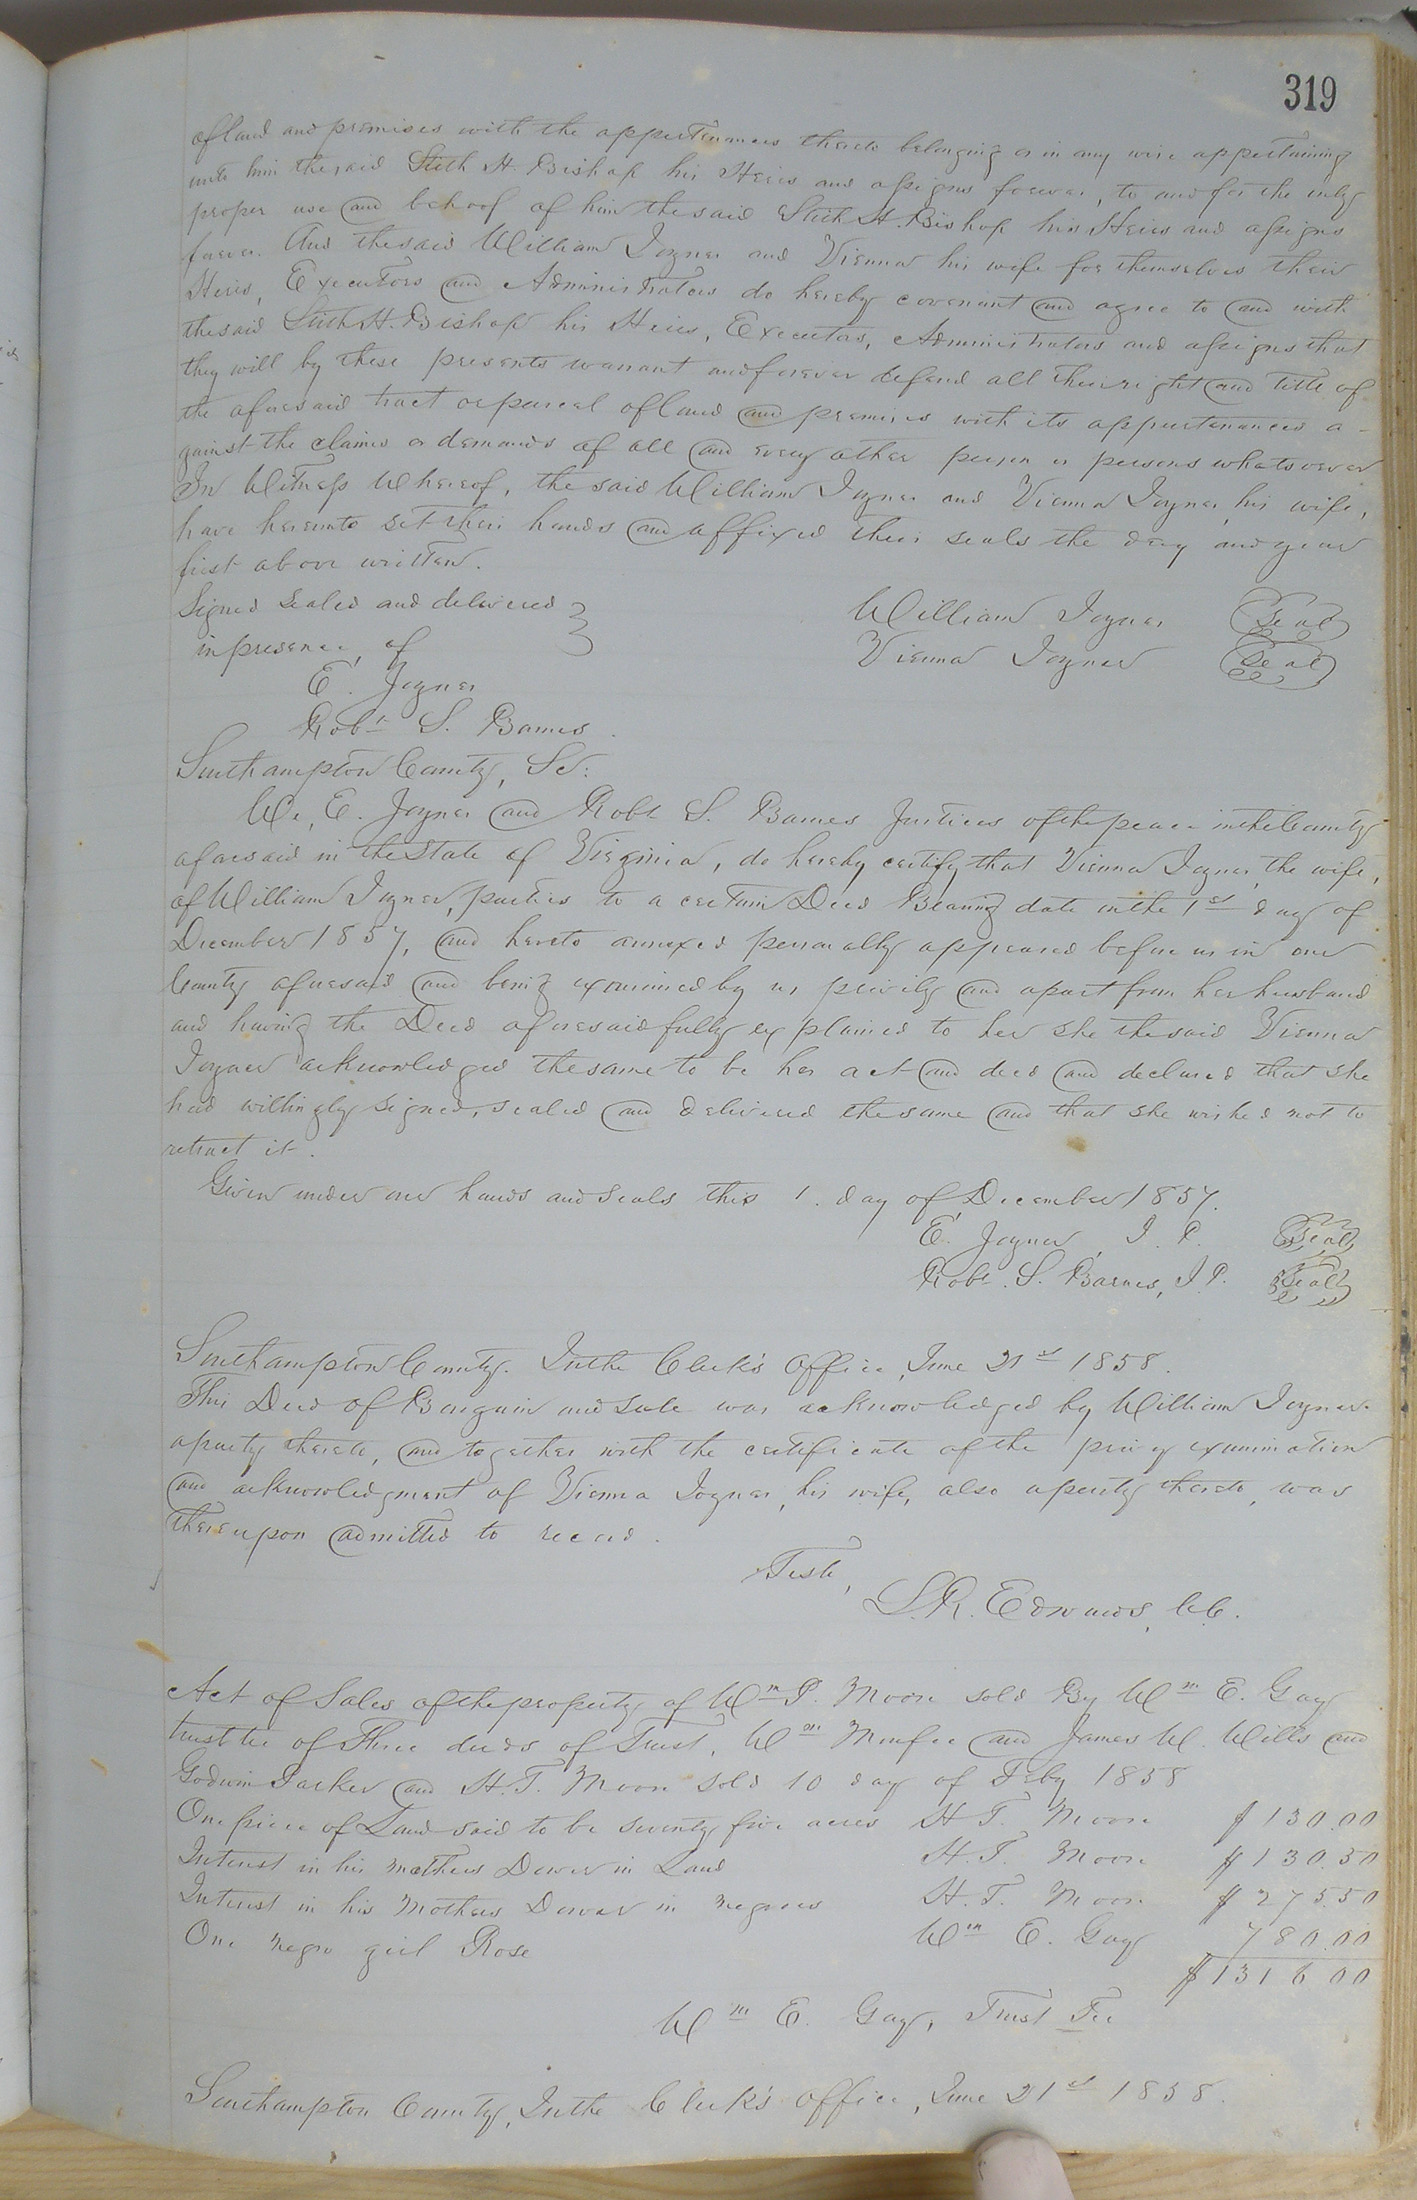 319
of land and premises with the appertenances thereto belonging or in any wise appertaining
unto him the said Stith H. Bishop his Heirs and assigns forever, to and for the only
proper use and behoof of him the said Stith H. Bishop his Heirs and assigns
forever. And the said William Joyner and Vienna his wife for themselves their
Heirs, Executors and Administrators do hereby covenant and agree to and with
the said Stith H. Bishop his Heirs, Executors, Administrators and assigns that
they will by these presents warrant and forever defend all their right and title of
the aforesaid tract or parcel of land and premises with its appurtenances a-
gainst the claims or demands of all and every other person or persons whatsoever
In Witness Whereof, the said William Joyner and Vienna Joyner, his wife,
have hereunto set their hands and affixed their seals the day and year
first above written.
Signed Sealed and delivered
in presence, of
William Joyner Seal
Vienna Joyner Seal
E. Joyner
Robt. S. Barnes.
Southampton County, Sct:
We, E. Joyner and Robt S. Barnes Justices of the peace in the County
aforesaid in the State of Virginia, do hereby certify that Vienna Joyner, the wife,
of William Joyner, parties to a certain Deed Bearing date on the 1st day of
December 1857, and hereto annexed personally appeared before us in our
County aforesaid and being examined by us privily and apart from her husband
and having the Deed aforesaid fully explained to her she the said Vienna
Joyner acknowledged the same to be her act and deed and declared that she
had willingly signed, sealed and delivered the same and that she wished not to
retract it.
Given under our hands and seals this 1. day of December 1857.
E. Joyner, J. P. Seal
Robt. S. Barnes, J. P. Seal
Southampton County. In the Clerk's Office, June 21st 1858.
This Deed of Bargain and Sale was acknowledged by William Joyner
a party thereto, and together with the certificate of the privy examination
and acknowledgment of Vienna Joyner, his wife, also a party thereto, was
thereupon admitted to record.
Teste,
L. R. Edwards, C.C.
Act of Sales of the property of Wm P. Moore sold By Wm E. Gay
trusttee of Three deeds of Trust, Wm and James W. Wills and
Godwin Parker and H. T. Moore Sold 10 day of Feby 1858
One piece of Land said to be seventy five acres H T. Moore $130.00
Interest in his mothers Dower in Land H. T. Moore $130.50
Interest in his Mothers Dower in negroes H. T. Moore $275.50
One negro girl Rose Wm E. Gay 780.00
$1316 00
Wm E. Gay, Trust Tee
Southampton County, In the Clerk's office, June 21st 1858.